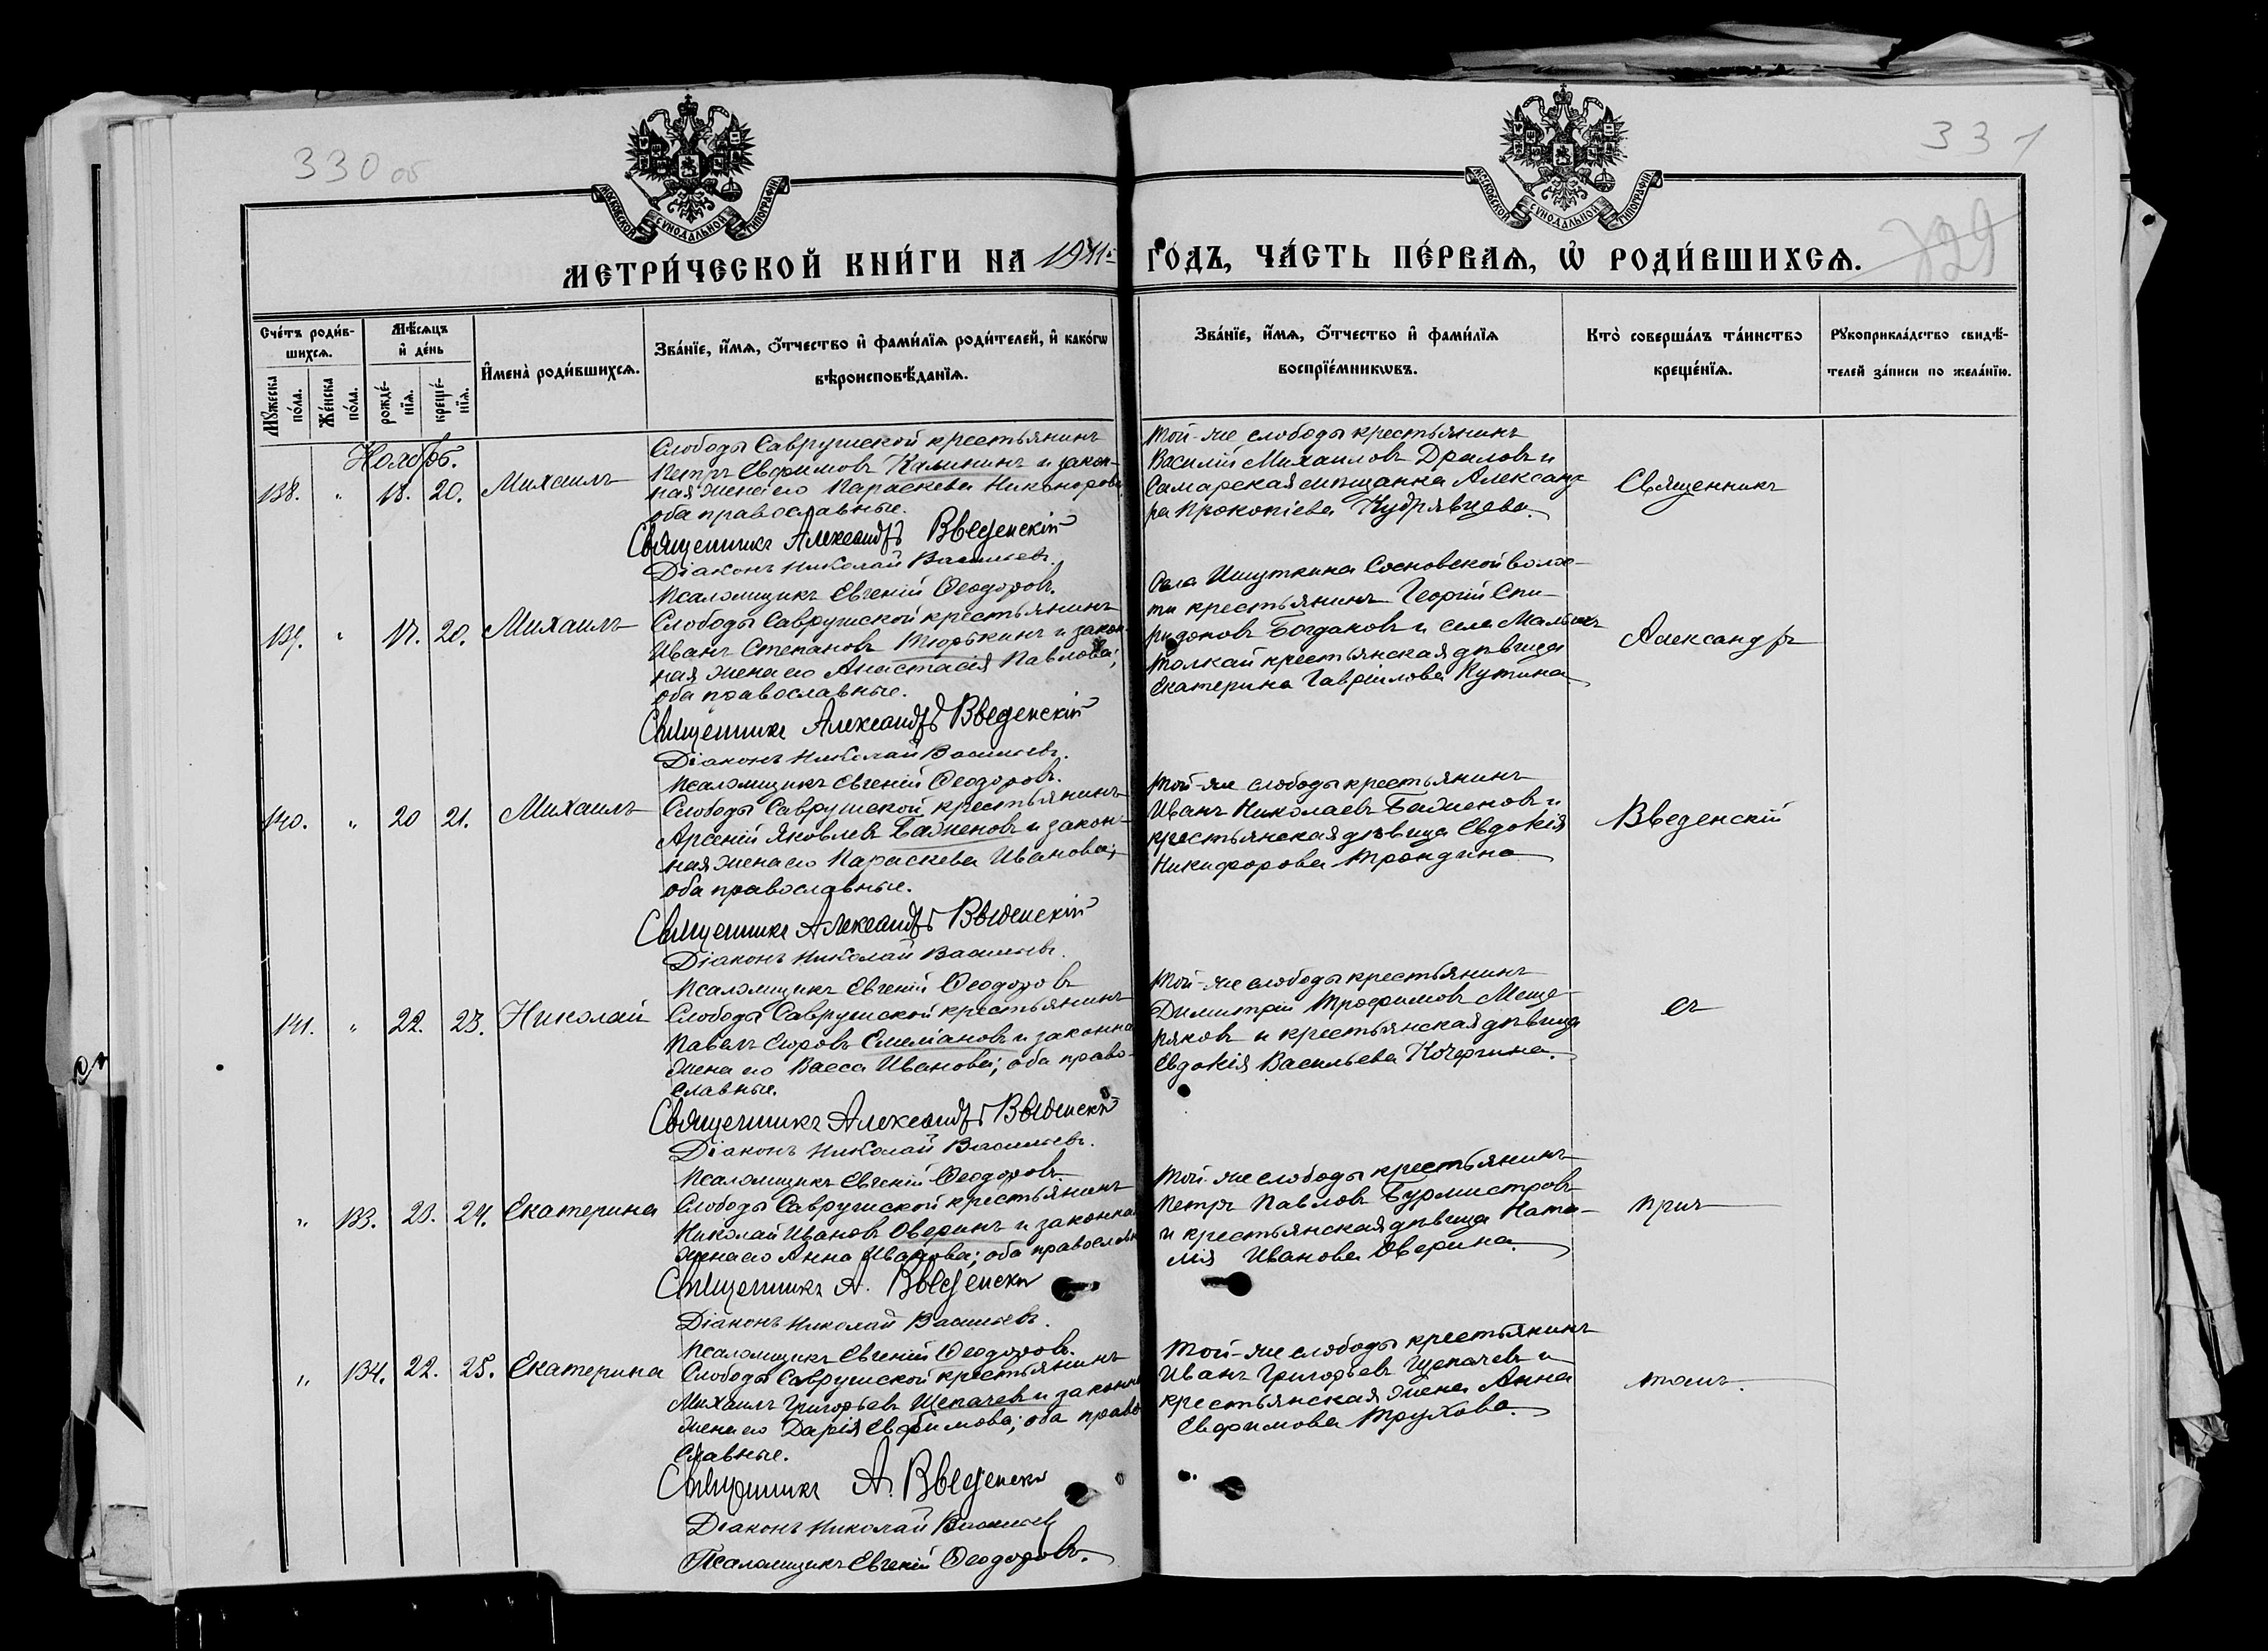 330 об
331
329
МОСКОВСКОЙ СѴНОДАЛЬНОЙ ТИПОГРАФІИ
МОСКОВСКОЙ СѴНОДАЛЬНОЙ ТИПОГРАФІИ
МЕТРИ́ЧЕСКОЙ КНИ́ГИ НА 1911 ГОДЪ, ЧА́СТЬ ПЕ́РВАѦ, Ѡ РОДИ́ВШИХСѦ.
Сче́тъ роди́в-
шихсѧ.
Мѣ́сѧцъ
и҆ де́нь
Мꙋ́жеска
по́ла.
Же́нска
по́ла.
рожде́-
нїѧ.
креще́-
нїѧ.
И҆мена̀ роди́вшихсѧ.
Зва́нїе, и҆́мѧ, ѻ҆́тчество и҆ фами́лїѧ роди́телей, и҆ како́гѡ
вѣроисповѣ́данїѧ.
Зва́нїе, и҆́мѧ, ѻ҆́тчество и҆ фами́лїѧ
воспрїе́мникѡвъ.
Кто̀ соверша́лъ та́инство
креще́нїѧ.
Рꙋкоприкла́дство свидѣ́-
телей за́писи по жела́нїю.
Ноябрь.
138. " 18. 20. Михаилъ
Слободы Саврушской крестьянинъ
Петръ Евфимовъ Калининъ и закон-
ная жена его Параскева Никонорова
оба православные.
Священникъ Александръ Введенскій
Діаконъ Николай Васильевъ.
Псаломщикъ Евгеній Ѳеодоровъ.
Той-же слободы крестьянинъ
Василій Михаиловъ Драловъ и
Самарская мѣщанка Александ-
ра Прокопіева Кудрявцева.
Священникъ
139. " 17. 20. Михаилъ
Слободы Саврушской крестьянинъ
Иванъ Степановъ Тюрькинъ и закон-
ная жена его Анастасія Павлова;
оба православные.
Священникъ Александръ Введенскій
Діаконъ Николай Васильевъ.
Псаломщикъ Евгеній Ѳеодоровъ.
Села Ишуткина Сосновской волос-
ти крестьянинъ Георгій Спи-
ридоновъ Богдановъ и села Малый
Толкай крестьянская дѣвица
Екатерина Гавріилова Кутина
Александръ
140. " 20 21. Михаилъ
Слободы Саврушской крестьянинъ
Арсеній Яковлевъ Баженовъ и закон-
ная жена его Параскева Иванова;
оба православные.
Священникъ Александръ Введенскій
Діаконъ Николай Васильевъ.
Псаломщикъ Евгеній Ѳеодоровъ
Той-же слободы крестьянинъ
Иванъ Николаевъ Баженовъ и
крестьянская дѣвица Евдокія
Никифорова Трондина
Введенскій
141. " 22. 23. Николай
Слободы Саврушской крестьянинъ
Павелъ Сюровъ Емеліановъ и законна
жена его Васса Иванова; оба право-
славные.
Священникъ Александръ Введенскій
Діаконъ Николай Васильевъ.
Псаломщикъ Евгеній Ѳеодоровъ.
Той-же слободы крестьянинъ
Димитрій Трофимовъ Меще-
ряковъ и крестьянская дѣвица
Евдокія Васильева Кочергина.
съ
" 133. 23. 24. Екатерина
Слободы Саврушской крестьянинъ
Николай Ивановъ Оверинъ и законная
жена его Анна Иванова; оба православн
Священникъ А. Введенскій
Діаконъ Николай Васильевъ.
Псаломщикъ Евгеній Ѳеодоровъ.
Той-же слободы крестьянинъ
Петръ Павловъ Бурмистровъ
и крестьянская дѣвица Ната-
лія Иванова Оверина.
прич
" 134. 22. 25. Екатерина
Слободы Саврушской крестьянинъ
Михаилъ Григорьевъ Щепачевъ и законн
жена его Дарія Евфимова; оба право
славные.
Священникъ А. Введенскій
Діаконъ Николай Васильевъ
Псаломщикъ Евгеній Ѳеодоровъ.
Той-же слободы крестьянинъ
Иванъ Григорьевъ Щепачевъ и
крестьянская жена Анна
Евфимова Трухова.
томъ.